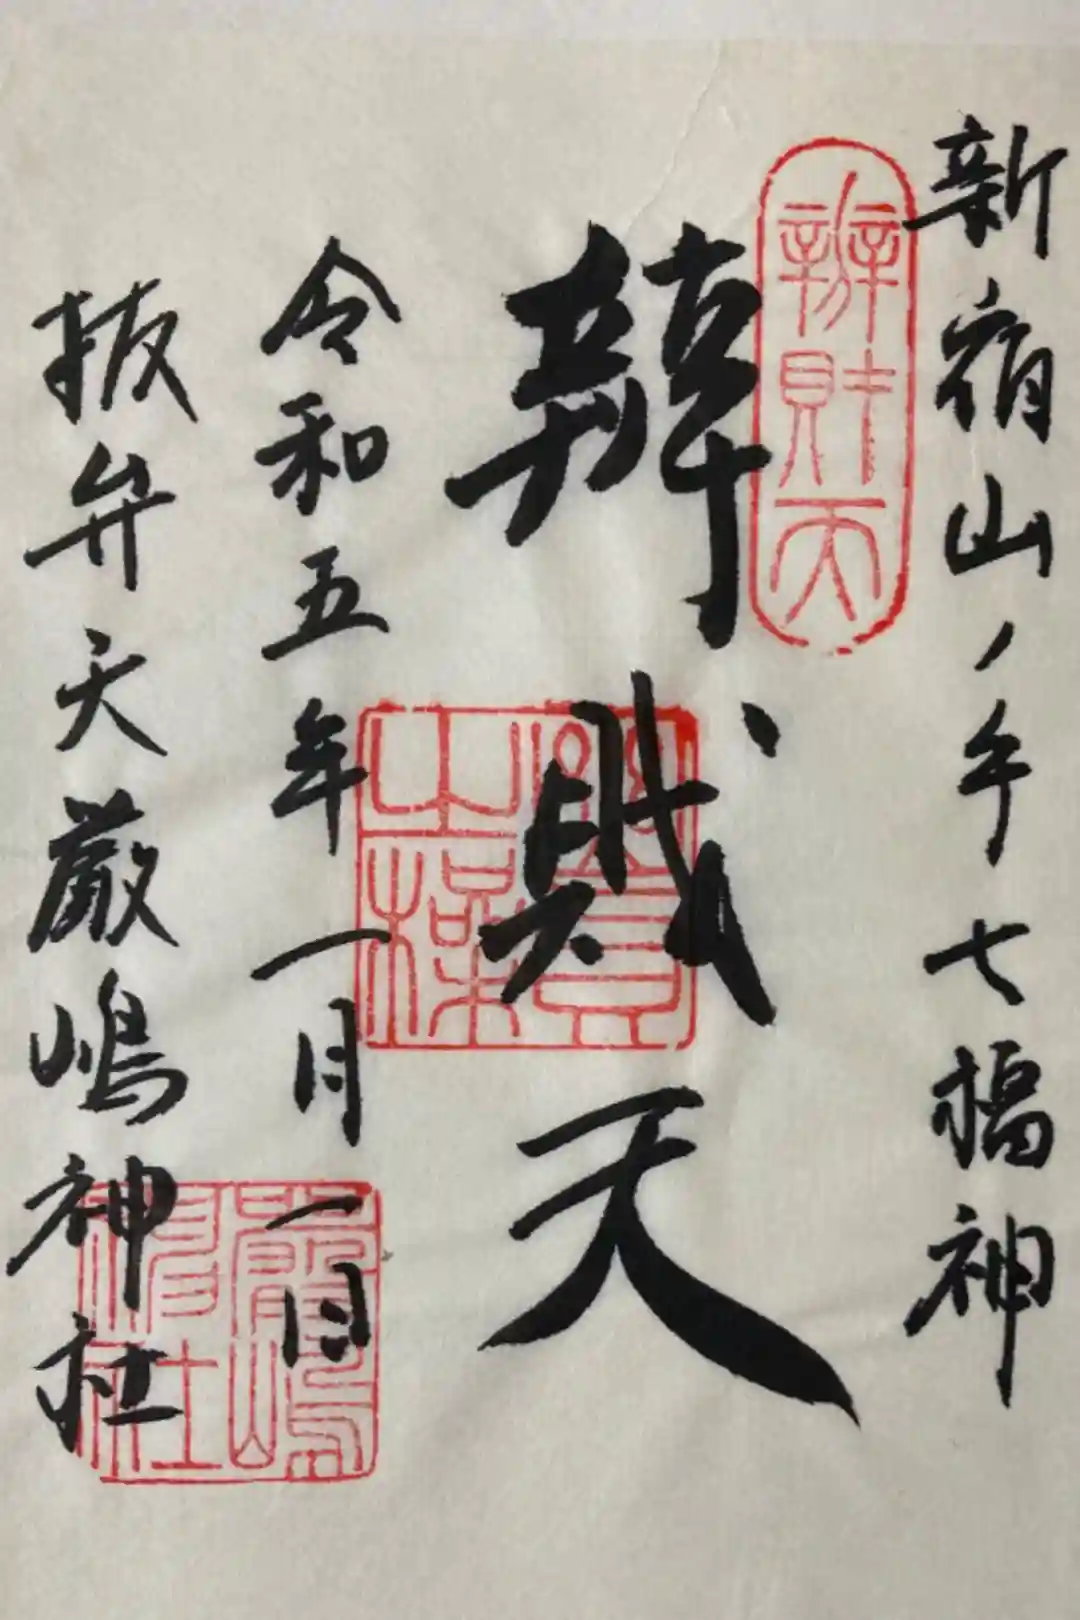 新宿山ノ手七福神
辨財天
辨戝天
令和五年一月一日
抜弁天厳嶋神社
嚴嶋神社